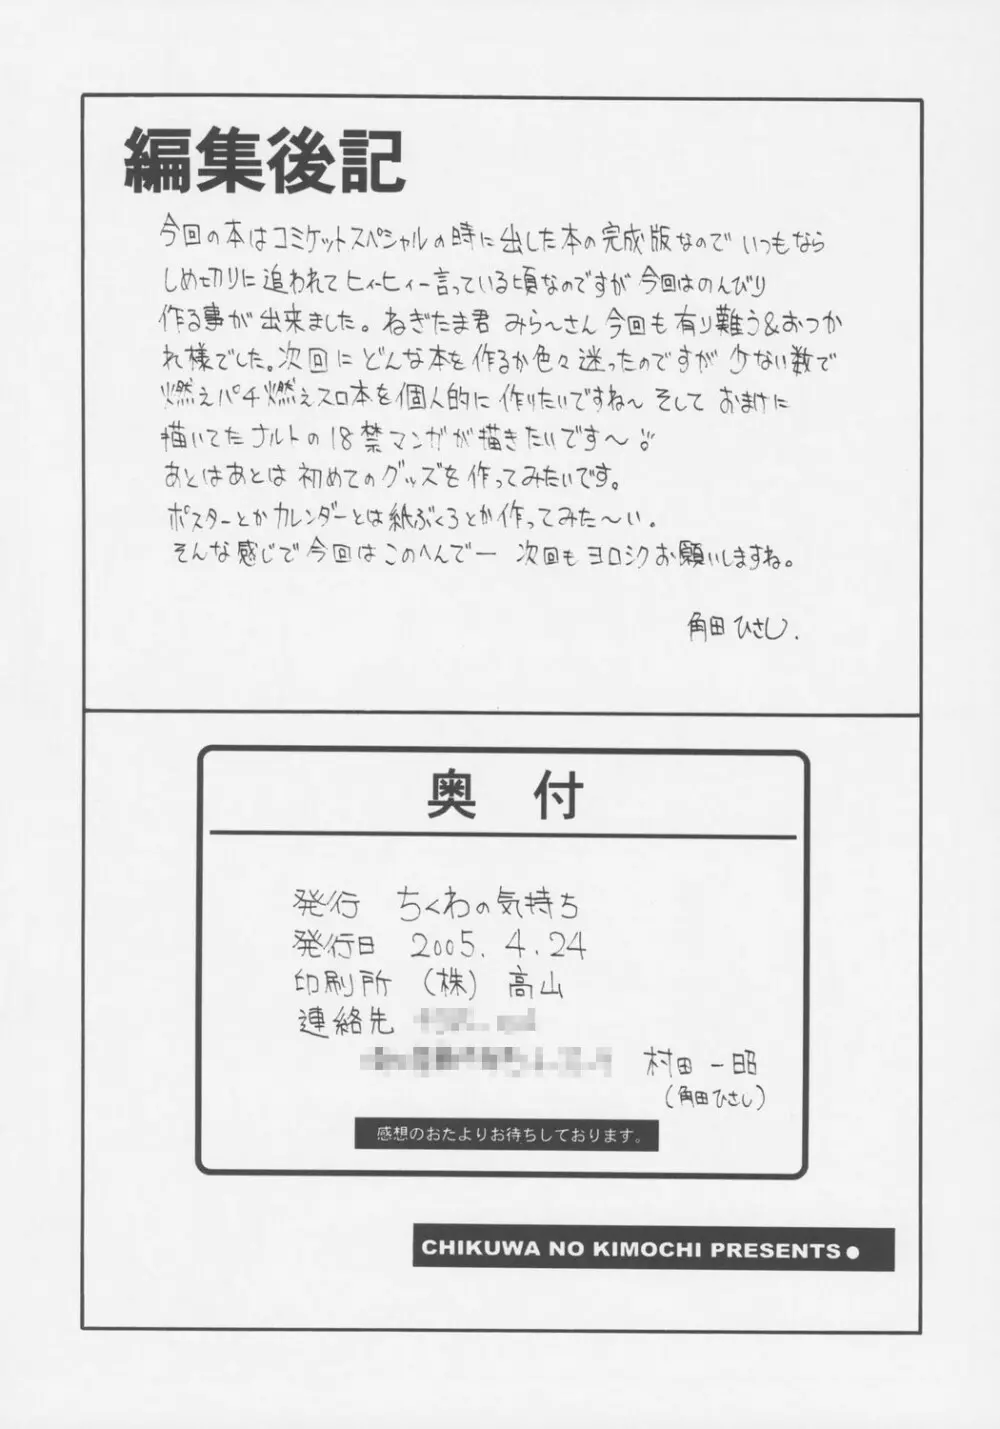 編集後記
今回の本はコミケットスペシャルの時に出した本の完成版なのでいつもなら
しめ切りに追われてヒィーヒィー言っている頃なのですが今回はのんびり
作る事が出来ました。ねぎたま君 みら〜さん今回も有り難う&おつか
れ様でした。次回にどんな本を作るか色々迷ったのですが少ない数で
燃えパチ燃えスロ本を個人的に作りたいですね〜そしておまけに
描いてたナルトの18禁マンガが描きたいです〜
あとはあとは初めてのグッズを作ってみたいです。
ポスターとかカレンダーとは紙ぶくろとか作ってみた〜い。
そんな感じで今回はこのへんでー 次回もヨロシクお願いしますね。
角田ひさし.
奥付
発行 ちくわの気持ち
発行日 2005.4.24
印刷所 (株)高山
連絡先
村田一昭
(角田ひさし)
感想のおたよりお待ちしております。
CHIKUWA NO KIMOCHI PRESENTS●